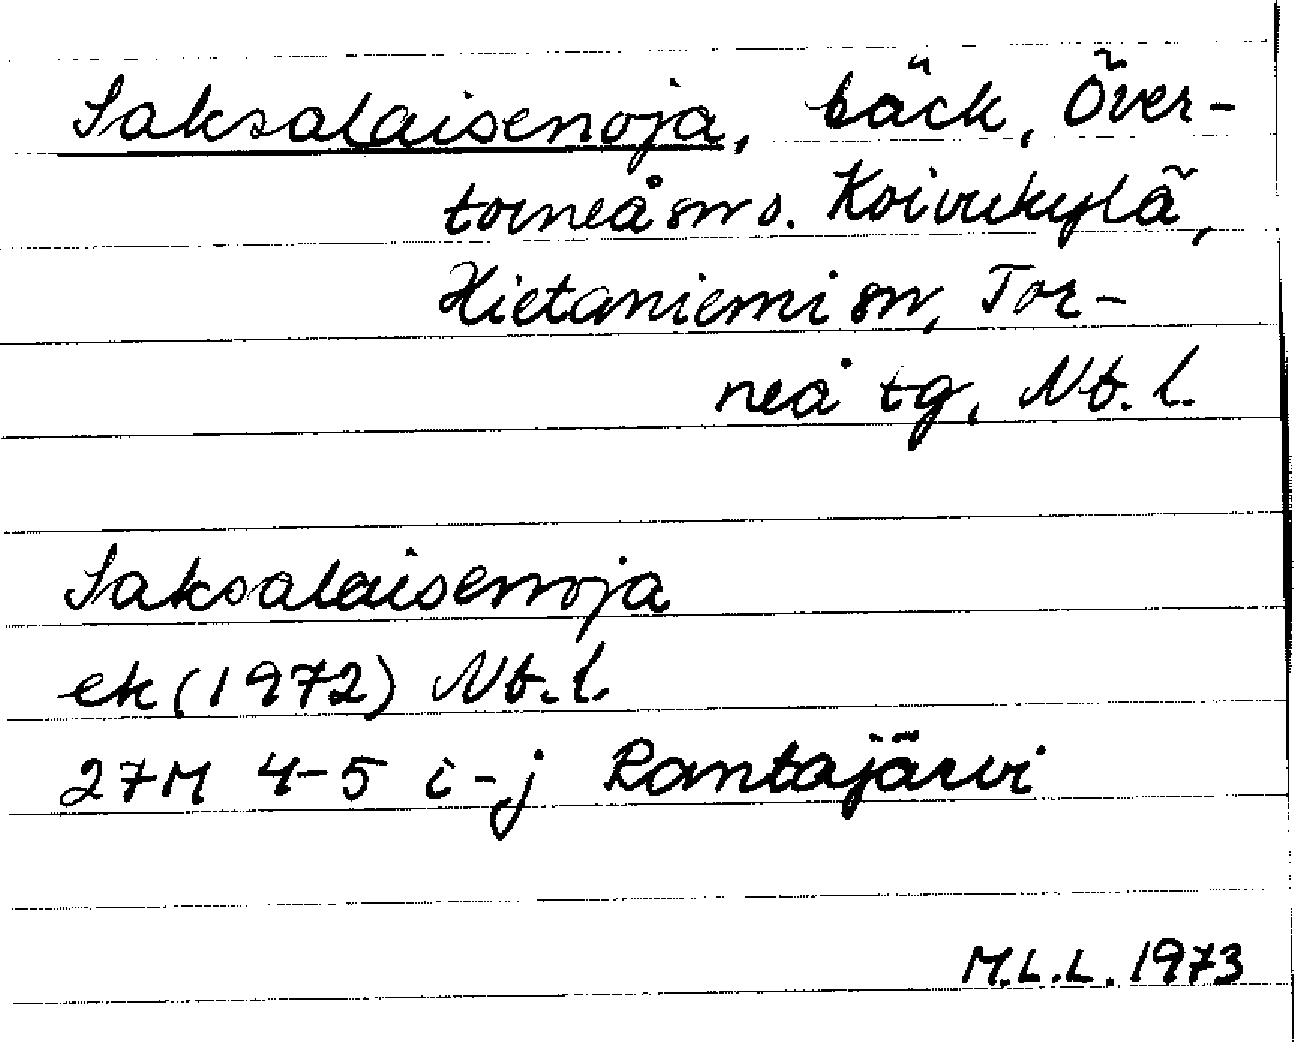 Saksalaisenoja, bäck, Över-
torneå sn o. Koivukylä,
Hietaniemi sn, Tor-
neå tg, Nb. l.
Saksalaisenoja
ek (1972) Nb. l.
27M 4-5 i-j Rantajärvi
M.L.L. 1973